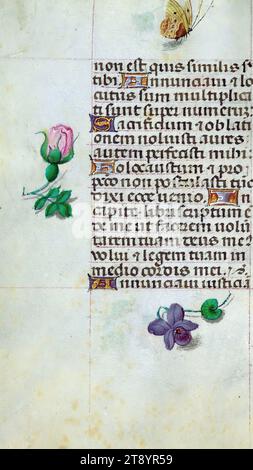 non est quis similis s
tibi Annunciavi et lo
cutus sum multiplic
ti sunt super numeru
Sacrificium et oblati
onem noluisti aures
autem perfecisti mihi
Holocaustum et pro p
cco non postulasti tuc
dixi ecce venio In
capite libri scriptum e
de me ut facerem volu
tatem tuam deus me
volui et legem tuam in
medio cordis mei
Annunciavi iusticia
alamy
Image ID: 2T8YR59
www.alamy.com